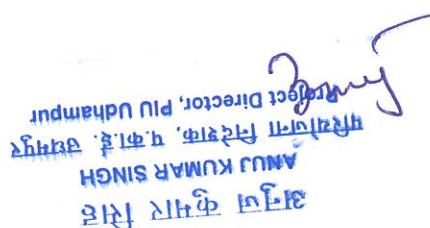 अनुज कुमार सिंह
ANUJ KUMAR SINGH
परियोजना निदेशक, प.का.ई. उधमपुर
Project Director, PIU Udhampur